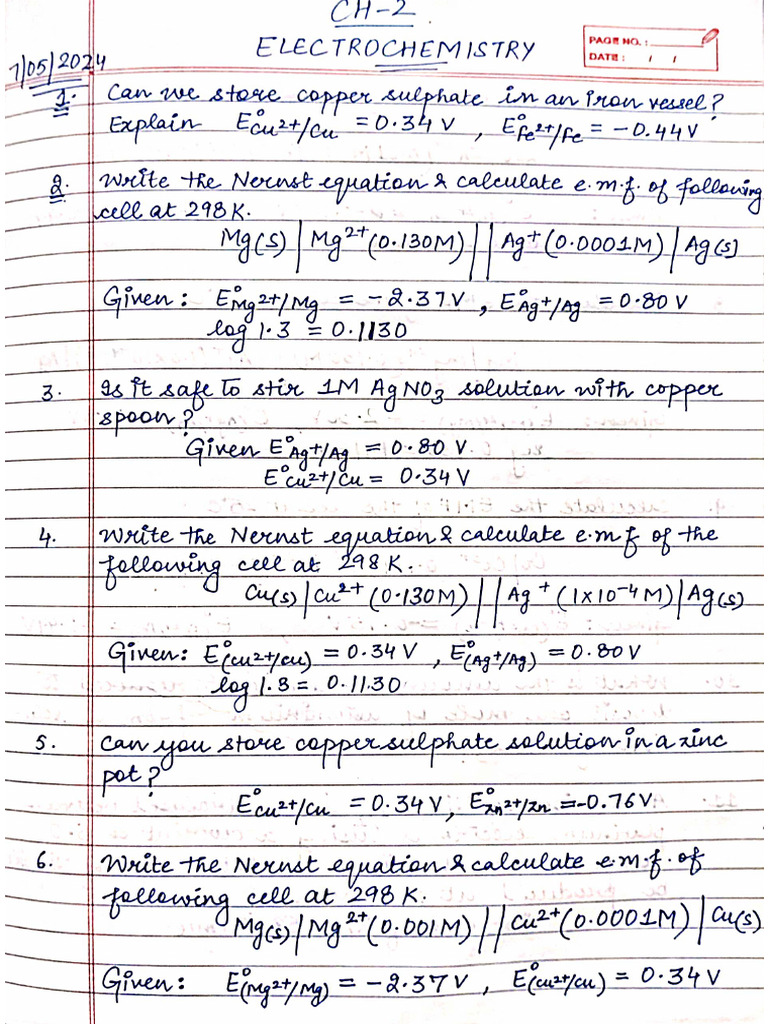 CH-2
ELECTROCHEMISTRY
PAGE NO.:
DATE: / /
7/05/2024
1. Can we store copper sulphate in an iron vessel?
Explain E°Cu2+/Cu = 0.34 V , E°Fe2+/Fe = -0.44V
2. Write the Nernst equation & calculate e.m.f. of following
cell at 298K.
Mg(s) | Mg2+(0.130M) || Ag+(0.0001M) | Ag(s)
Given: E°Mg2+/Mg = -2.37V , E°Ag+/Ag = 0.80 V
log 1.3 = 0.1130
3. Is it safe to stir 1M AgNO3 solution with copper
spoon?
Given E°Ag+/Ag = 0.80 V.
E°Cu2+/Cu = 0.34V
4. Write the Nernst equation & calculate e.m.f of the
following cell at 298 K.
Cu(s) | Cu2+ (0.130M) || Ag+ (1x10-4M) | Ag(s)
Given: E°(Cu2+/Cu) = 0.34V , E°(Ag+/Ag) = 0.80V
log 1.3 = 0.1130
5. Can you store copper sulphate solution in a zinc
pot?
E°Cu2+/Cu = 0.34 V, E°Zn2+/Zn = -0.76V
6. Write the Nernst equation & calculate e.m.f. of
following cell at 298K.
Mg(s) | Mg2+(0.001M) || Cu2+(0.0001M) | Cu(s)
Given: E°(Mg2+/Mg) = -2.37V , E°(Cu2+/Cu) = 0.34V